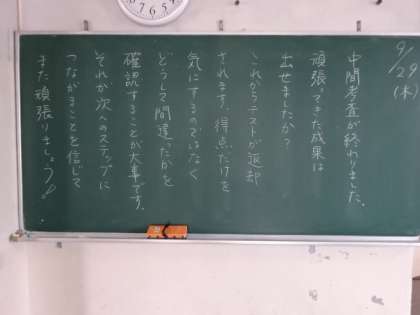 9/29(木)
中間考査が終わりました。
頑張ってきた成果は
出せましたか?
これからテストが返却
されます。得点だけを
気にするのではなく
どうして間違ったかを
確認することが大事です。
それが次へのステップに
つながることを信じて
また頑張りましょう!